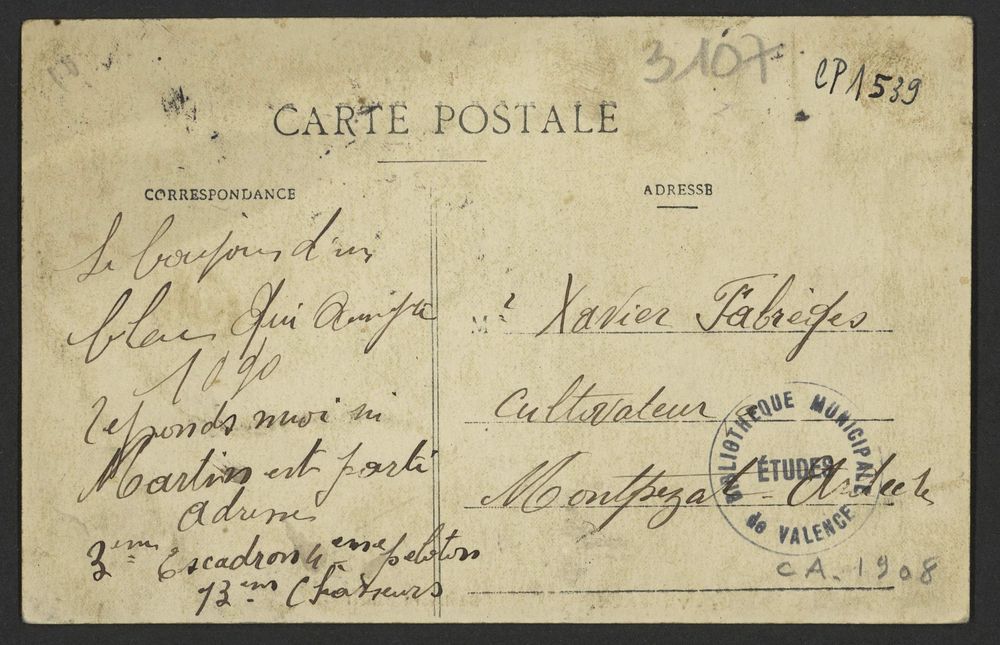 3107
CP1539
CARTE POSTALE
CORRESPONDANCE
Le bonjour d'un
bleu qui
1090
reponds moi si
Martin est parti
adresse
3eme Escadron 4eme peloton
13eme Chasseurs
ADRESSE
Mr Xavier Fabrèges
Cultivateur
Montpezat - Ardeche
BIBLIOTHEQUE MUNICIPALE
ÉTUDES
de VALENCE
CA. 1908